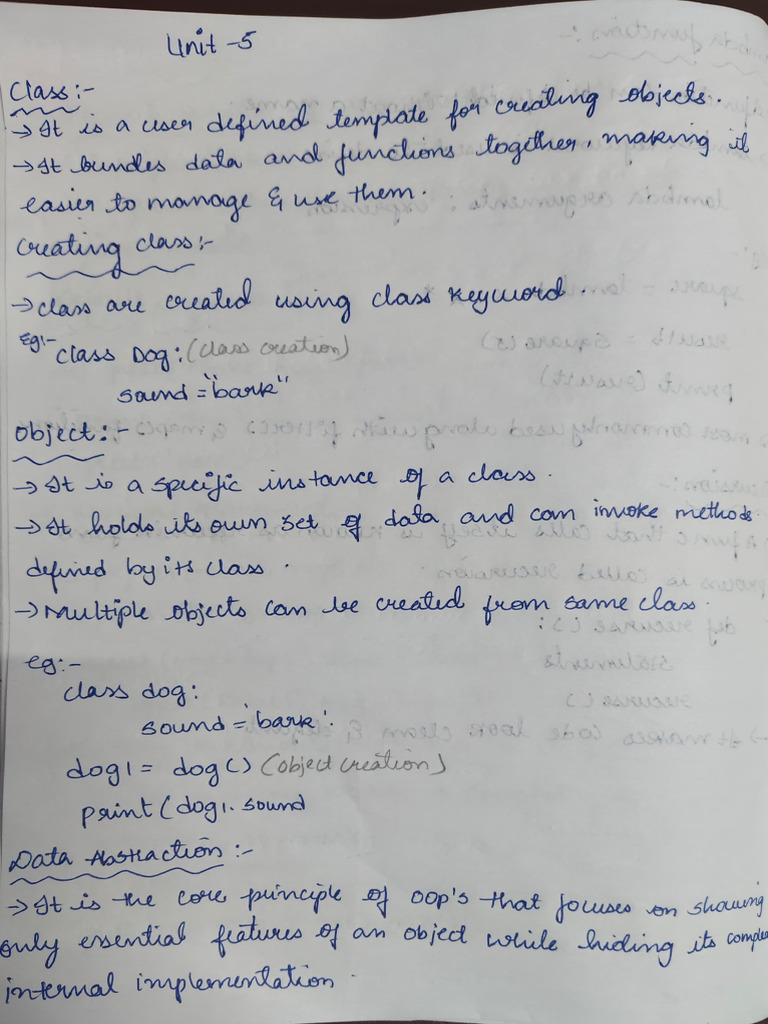 Unit -5
Class:-
→ It is a user defined template for creating objects.
→ It bundles data and functions together, making it
easier to manage & use them.
Creating class:-
→ class are created using class keyword.
Eg:- class Dog: (class creation)
sound = "bark"
Object:-
→ It is a specific instance of a class.
→ It holds its own set of data and can invoke methods
defined by its class.
→ Multiple objects can be created from same class.
eg:-
class dog:
sound = 'bark'.
dog1 = dog() (object creation)
print (dog1. sound
Data Abstraction:-
→ It is the core principle of OOP's that focuses on showing
only essential features of an object while hiding its complex
internal implementation.